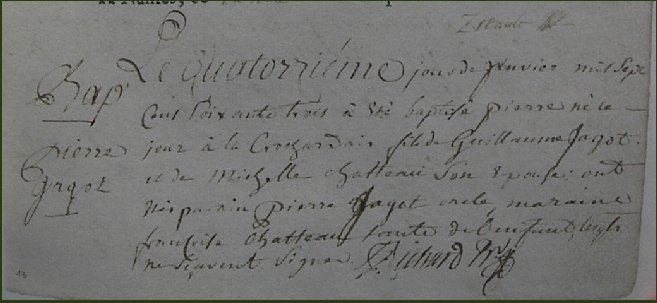 Bap
pierre
jagot
Le quatorziéme jour de janvier mil sept
cent soixante trois à été baptisé pierre né ce
jour à la Crochardais fils de Guillaume Jagot
et de Michelle chatteau son epouse: ont
parain pierre Jagot oncle, maraine
françoise Chatteau tante de l'enfant, lesqls
ne sçavent signer. Richard